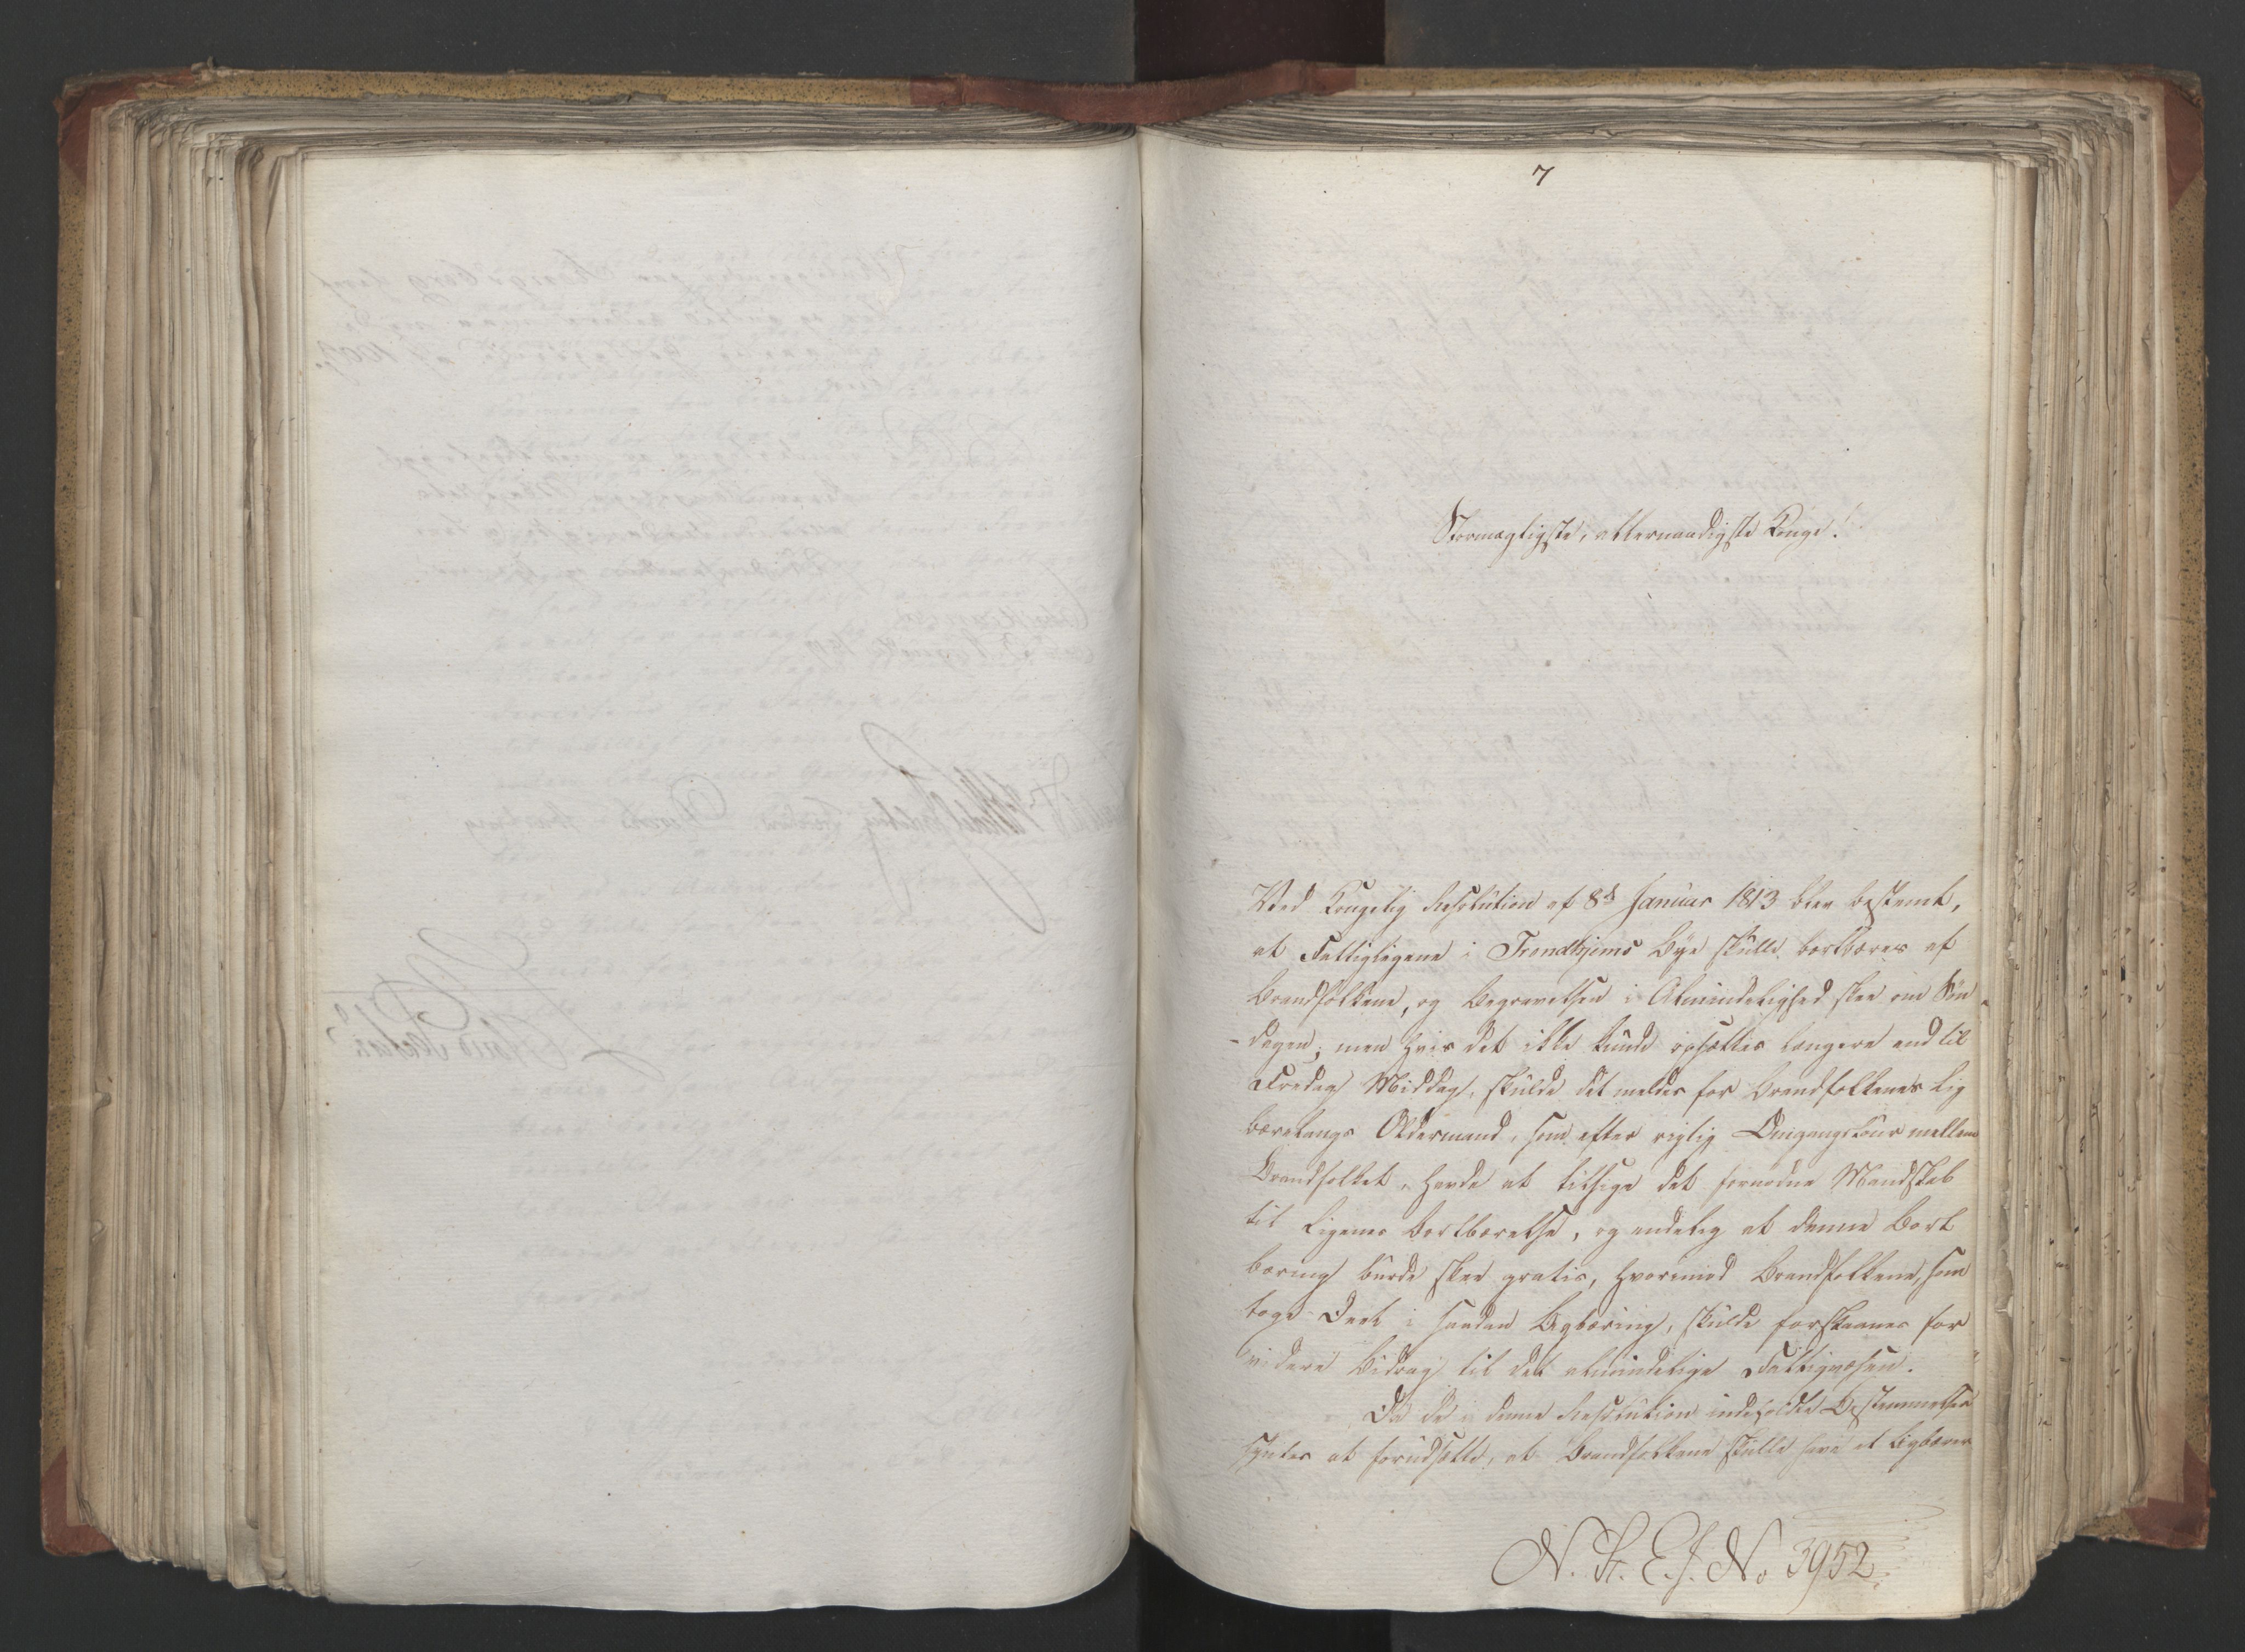 7
Stormægtigste, allernaadigste Konge!
Ved Kongelig Resolution af 8de Januar 1813 blev bestemt,
at Fattigligene i Trondhjems Bye skulle bortbæres af
Brandfolkene, og Begravelsen i Almindelighed skee om Søn-
-dagen; men hvis det ikke kunde opsættes længere end til
Fredag Middag, skulde det meldes for Brandfolkenes Lig
bærerlaugs Oldermand, som efter rigtig Omgangstour mellem
Brandfolket, havde at tilsige det fornødne Mandskab
til Ligenes Bortbærelse, og endelig at denne Bort
bæring burde skee gratis, hvorimod Brandfolkene, som
toge Deel i saadan Ligbæring, skulde forskaanes for
videre Bidrag til det almindelige Fattigvæsen.
Da de i denne Resolution indeholdte Bestemmelser
syntes at forudsætte, at Brandfolkene skulle have et Ligbærer
N. St. E. J. No 3952.